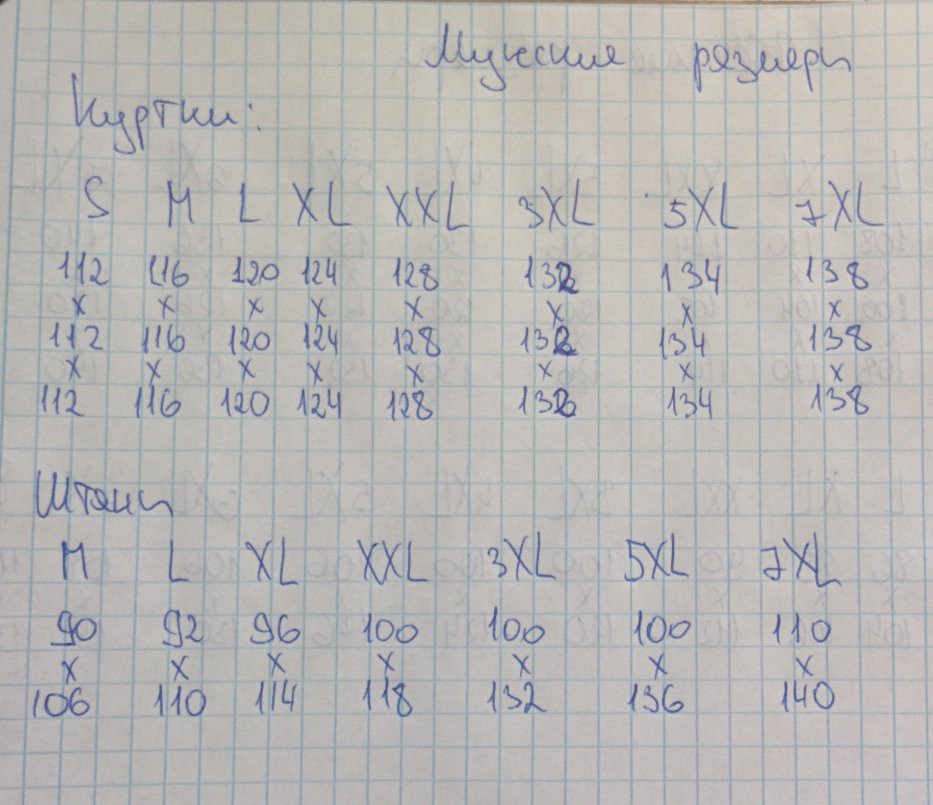 Мужские размеры
Куртки:
S M L XL XXL 3XL 5XL 7XL
112 116 120 124 128 132 134 138
x x x x x x x x
112 116 120 124 128 132 134 138
x x x x x x x x
112 116 120 124 128 132 134 138
Штаны
M L XL XXL 3XL 5XL 7XL
90 92 96 100 100 100 110
x x x x x x x
106 110 114 118 132 136 140